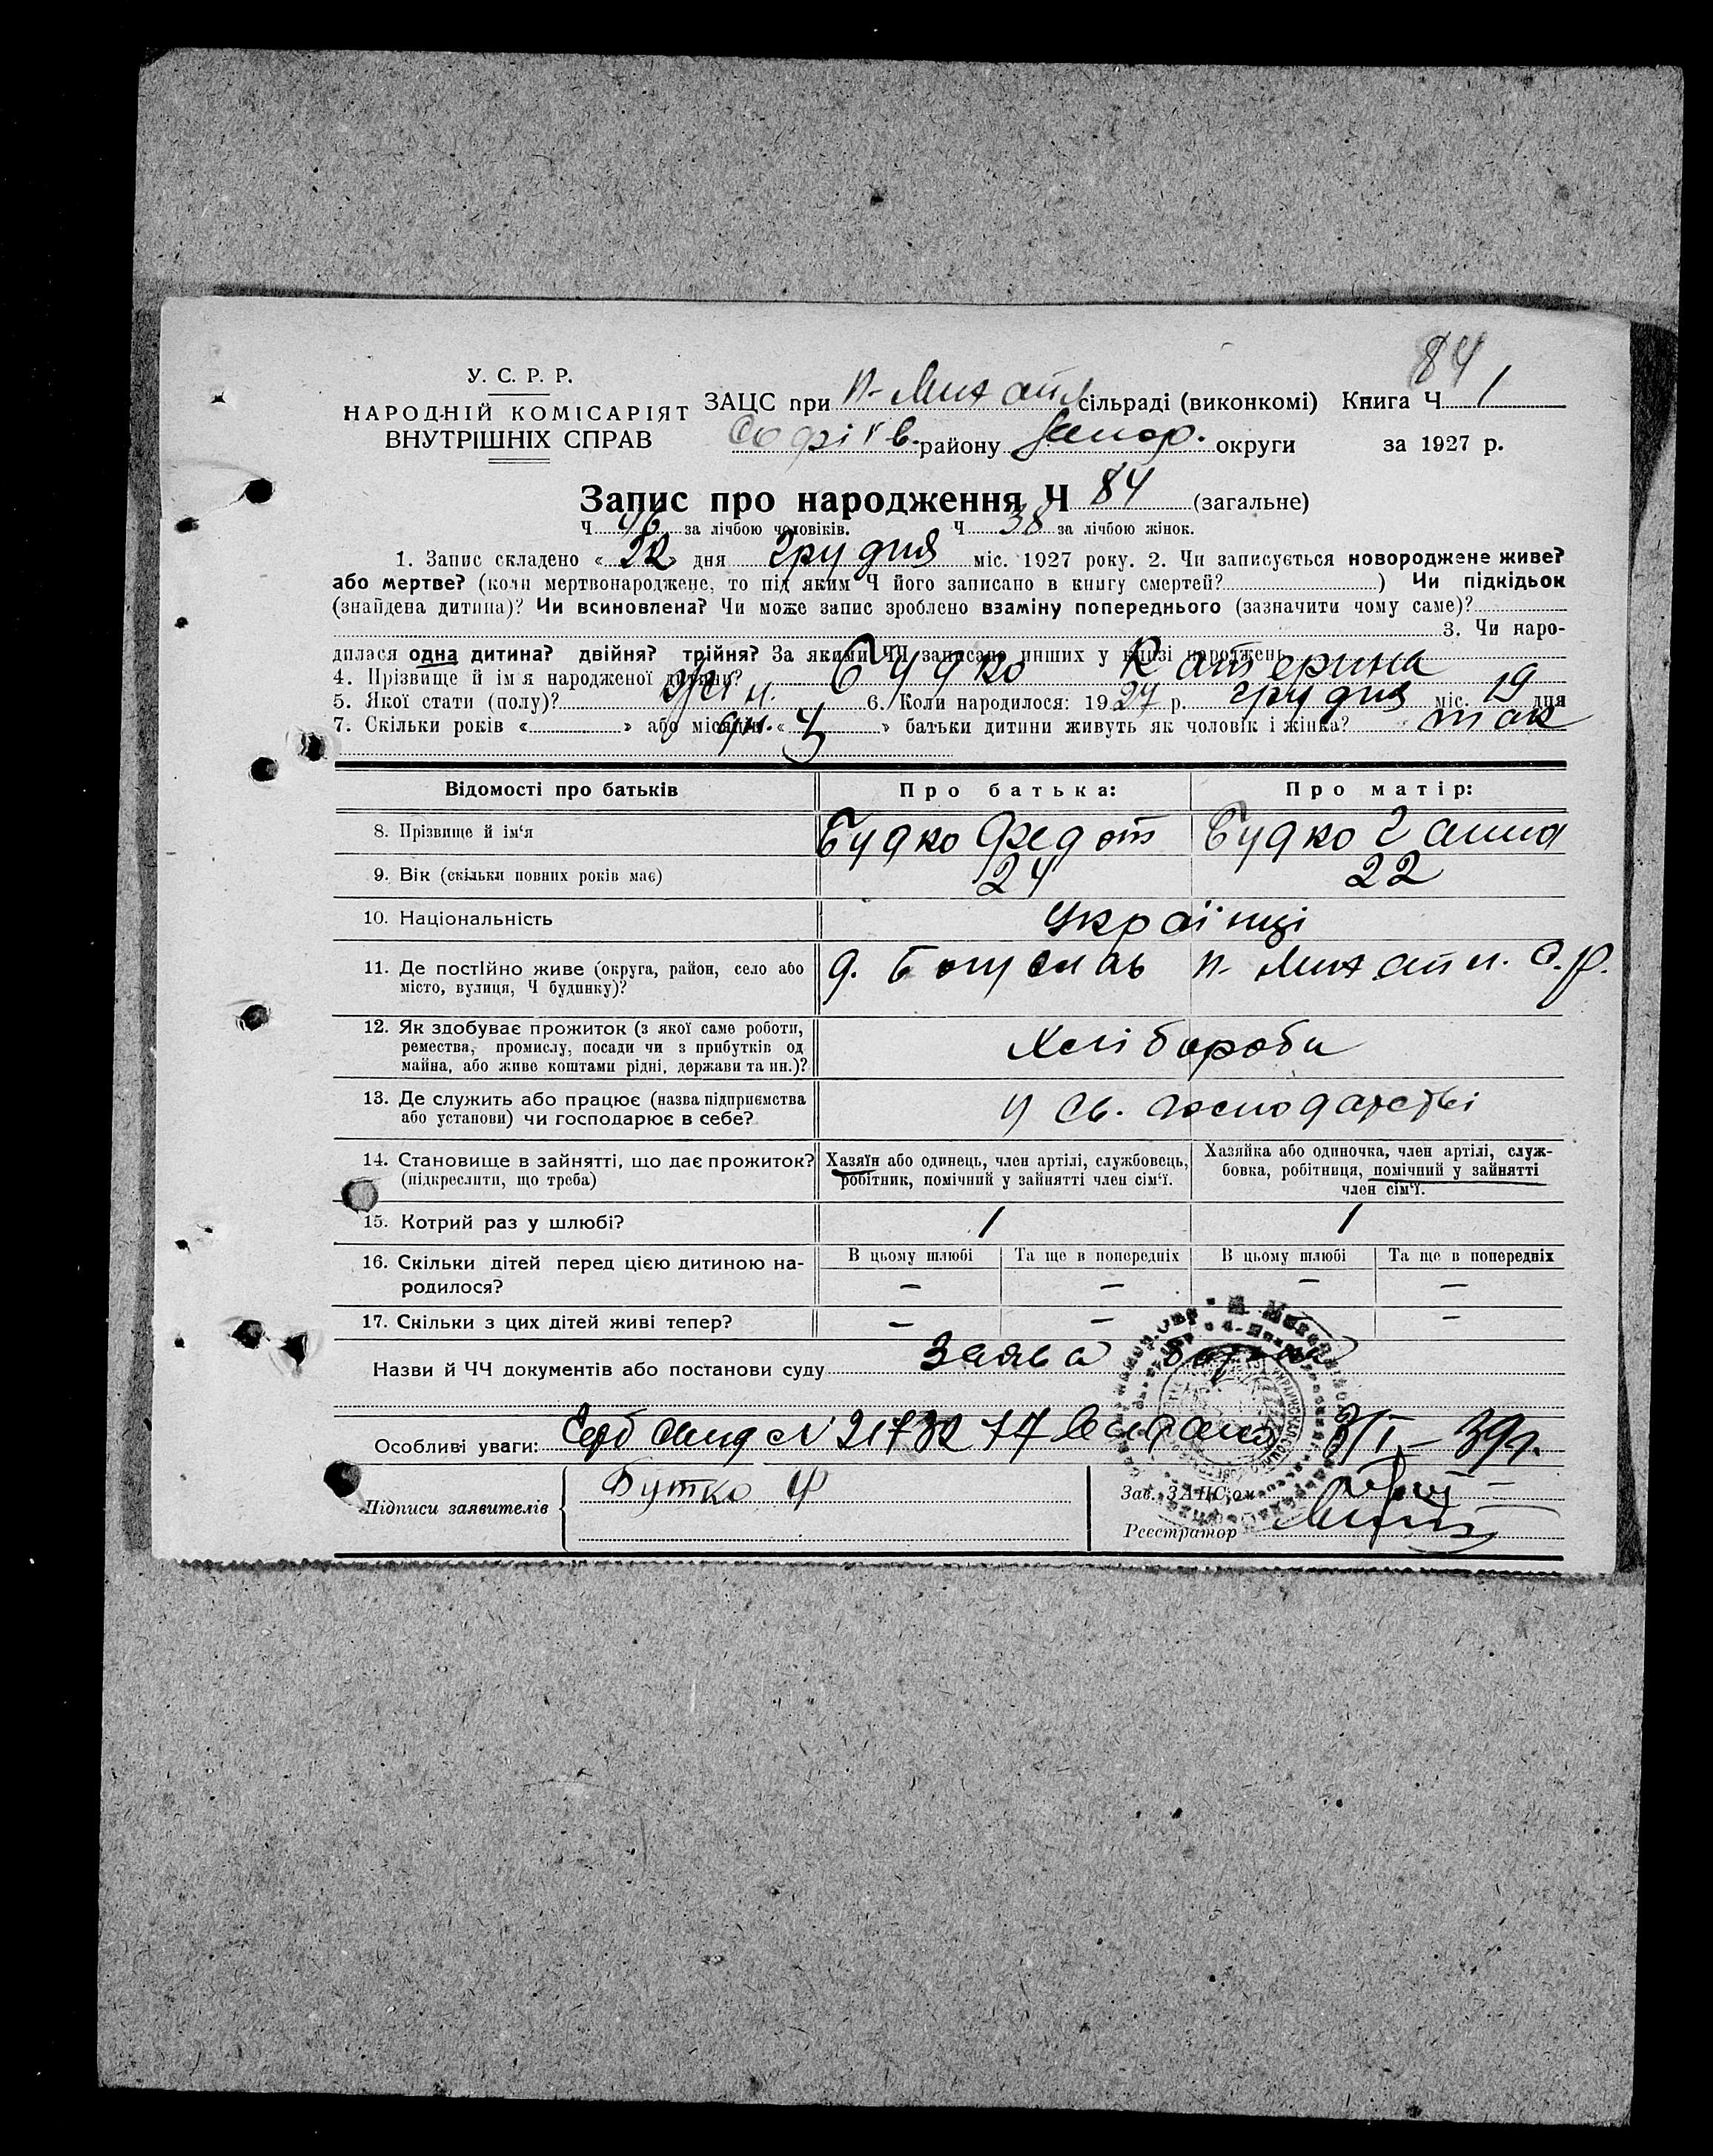 84
У. С. Р. Р.
НАРОДНІЙ КОМІСАРІЯТ
ВНУТРІШНІХ СПРАВ
ЗАЦС при Н-Михайл сільраді (виконкомі) Книга Ч 1
Софіїв. району Запор. округи за 1927 р.
Запис про народження Ч 84 (загальне)
Ч 46 за лічбою чоловіків. Ч 38 за лічбою жінок.
1. Запис складено « 22 » дня Грудня міс. 1927 року. 2. Чи записується новороджене живе?
або мертве? (коли мертвонароджене, то під яким Ч його записано в книгу смертей? ) Чи підкідьок
(знайдена дитина)? Чи всиновлена? Чи може запис зроблено взаміну попереднього (зазначити чому саме)?
3. Чи наро-
дилася одна дитина? двійня? трійня? За якими ЧЧ записано инших у книзі народжень
4. Прізвище й ім'я народженої дитини? Будко Катерина
5. Якої стати (полу)? жін. 6. Коли народилося: 1927 р. грудня міс. 19 дня
7. Скільки років « » або місяців « » батьки дитини живуть як чоловік і жінка? так
Відомості про батьків Про батька: Про матір:
8. Прізвище й ім'я Будко Федот Будко Ганна
9. Вік (скільки повних років має) 24 22
10. Національність Українці
11. Де постійно живе (округа, район, село або
місто, вулиця, Ч будинку)? д. Богуслав Н-Михайл. С.Р.
12. Як здобуває прожиток (з якої саме роботи,
ремества, промислу, посади чи з прибутків од
майна, або живе коштами рідні, держави та ин.)? Хлібороби
13. Де служить або працює (назва підприємства
або установи) чи господарює в себе? У св. господарстві
14. Становище в зайнятті, що дає прожиток?
(підкреслити, що треба)
Хазяїн або одинець, член артілі, службовець,
робітник, помічний у зайнятті член сім'ї.
Хазяйка або одиночка, член артілі, служ-
бовка, робітниця, помічний у зайнятті
член сім'ї.
15. Котрий раз у шлюбі? 1 1
16. Скільки дітей перед цією дитиною на-
родилося?
В цьому шлюбі Та ще в попередніх В цьому шлюбі Та ще в попередніх
— — — —
17. Скільки з цих дітей живі тепер? — — —
Назви й ЧЧ документів або постанови суду Заява
Особливі уваги: N 217
Підписи заявителів Бутко Ф
Зав. ЗАЦС'ом
Реєстратор